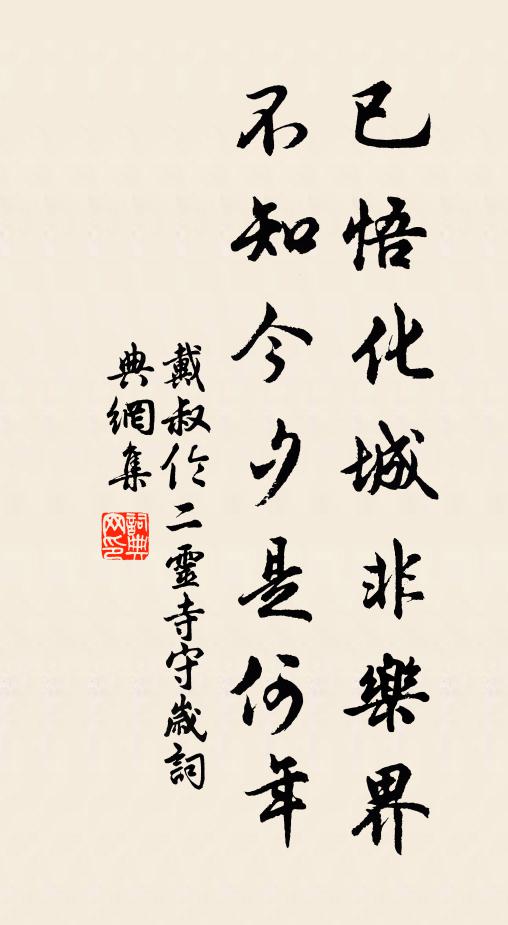 已悟化城非樂界
不知今夕是何年
戴叔伦二靈寺守歲詞
典網集
詞典
网印